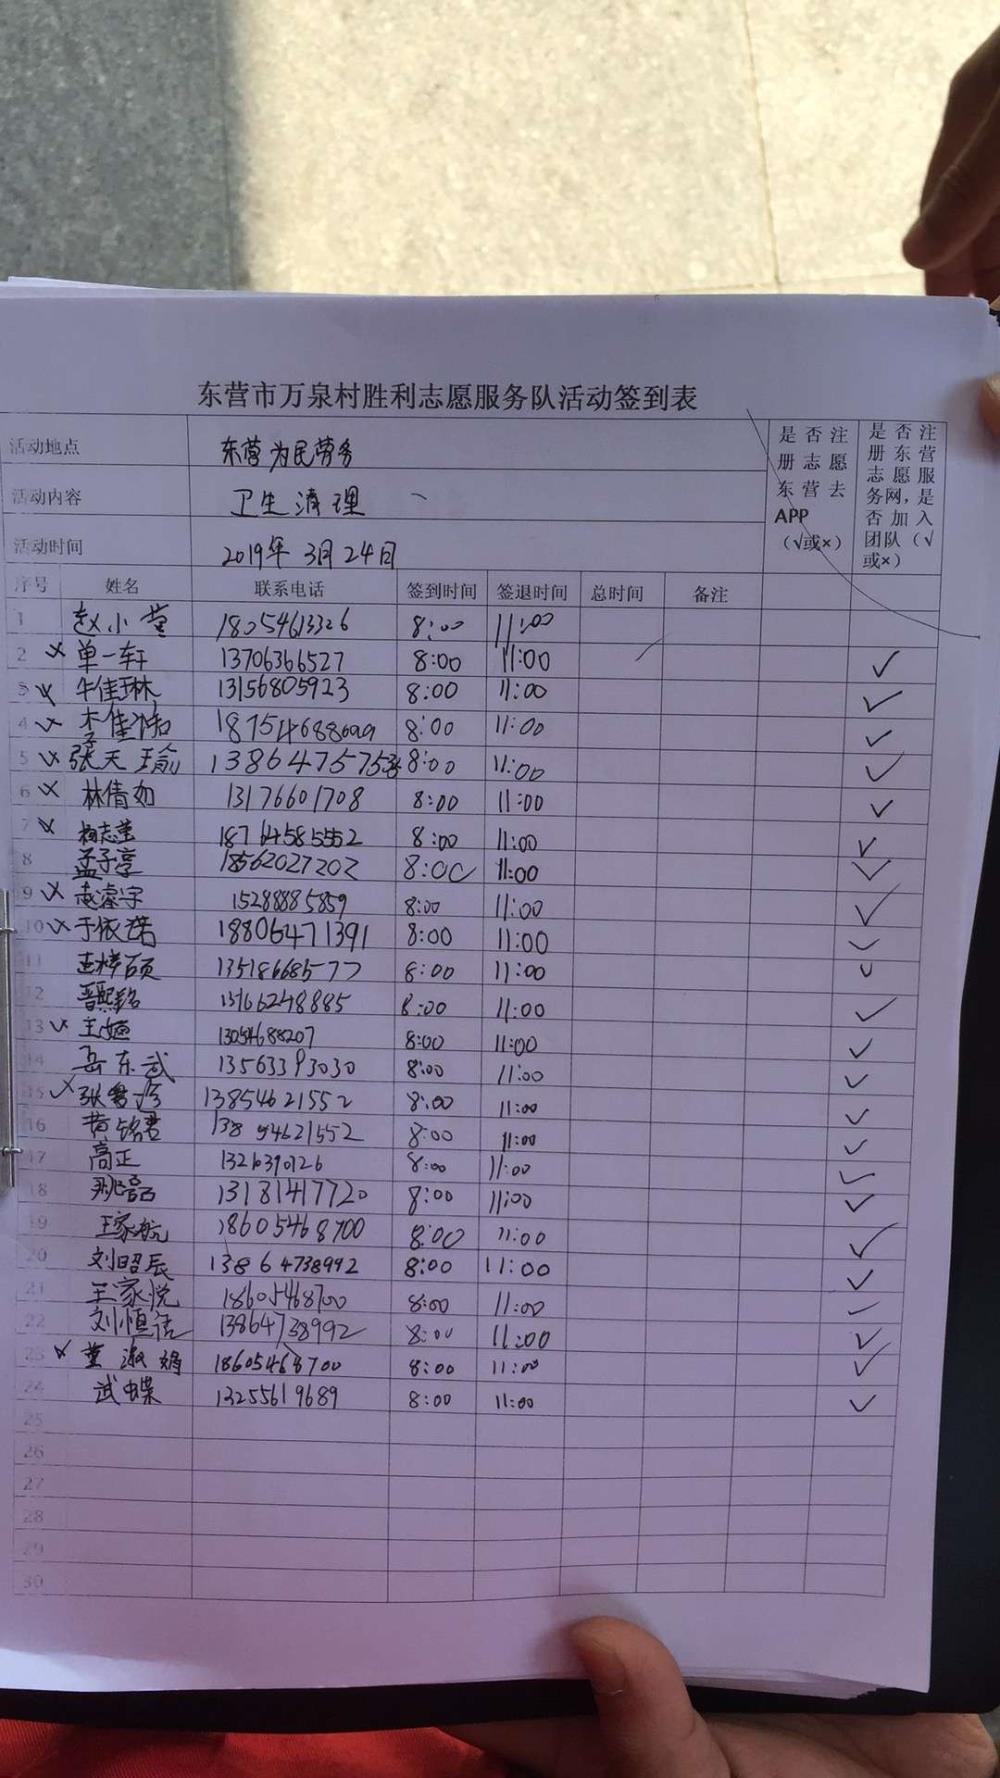 东营市万泉村胜利志愿服务队活动签到表
活动地点 东营为民劳务
活动内容 卫生清理
活动时间 2019年3月24日
是否注册志愿东营去APP（√或×）
是否注册东营志愿服务网，是否加入团队（√或×）
序号 姓名 联系电话 签到时间 签退时间 总时间 备注
1 赵小萱 18054613326 8:00 11:00
2 × 单一轩 13706366527 8:00 11:00 √
3 牛佳琳 13156805923 8:00 11:00 √
4 8:00 11:00 √
5 × 张天瑜 8:00 11:00 √
6 × 林倩如 13176601708 8:00 11:00 √
7 × 18764585552 8:00 11:00 √
8 孟子享 18562027202 8:00 11:00 √
9 × 赵睿宇 15288885859 8:00 11:00 √
10 × 于依诺 18806471391 8:00 11:00 √
11 13518668577 8:00 11:00 √
12 13166248885 8:00 11:00 √
13 × 13054688207 8:00 11:00 √
14 岳东武 13563393030 8:00 11:00 √
15 × 13854621552 8:00 11:00 √
16 黄铭君 8:00 11:00 √
17 高正 8:00 11:00 √
18 13181417720 8:00 11:00 √
19 王家航 18605468700 8:00 11:00 √
20 刘昭辰 13864738992 8:00 11:00 √
21 王家悦 18605468700 8:00 11:00 √
22 刘恒 13864738992 8:00 11:00 √
23 × 董淑娟 18605468700 8:00 11:00 √
24 武蝶 13255619689 8:00 11:00 √
25
26
27
28
29
30